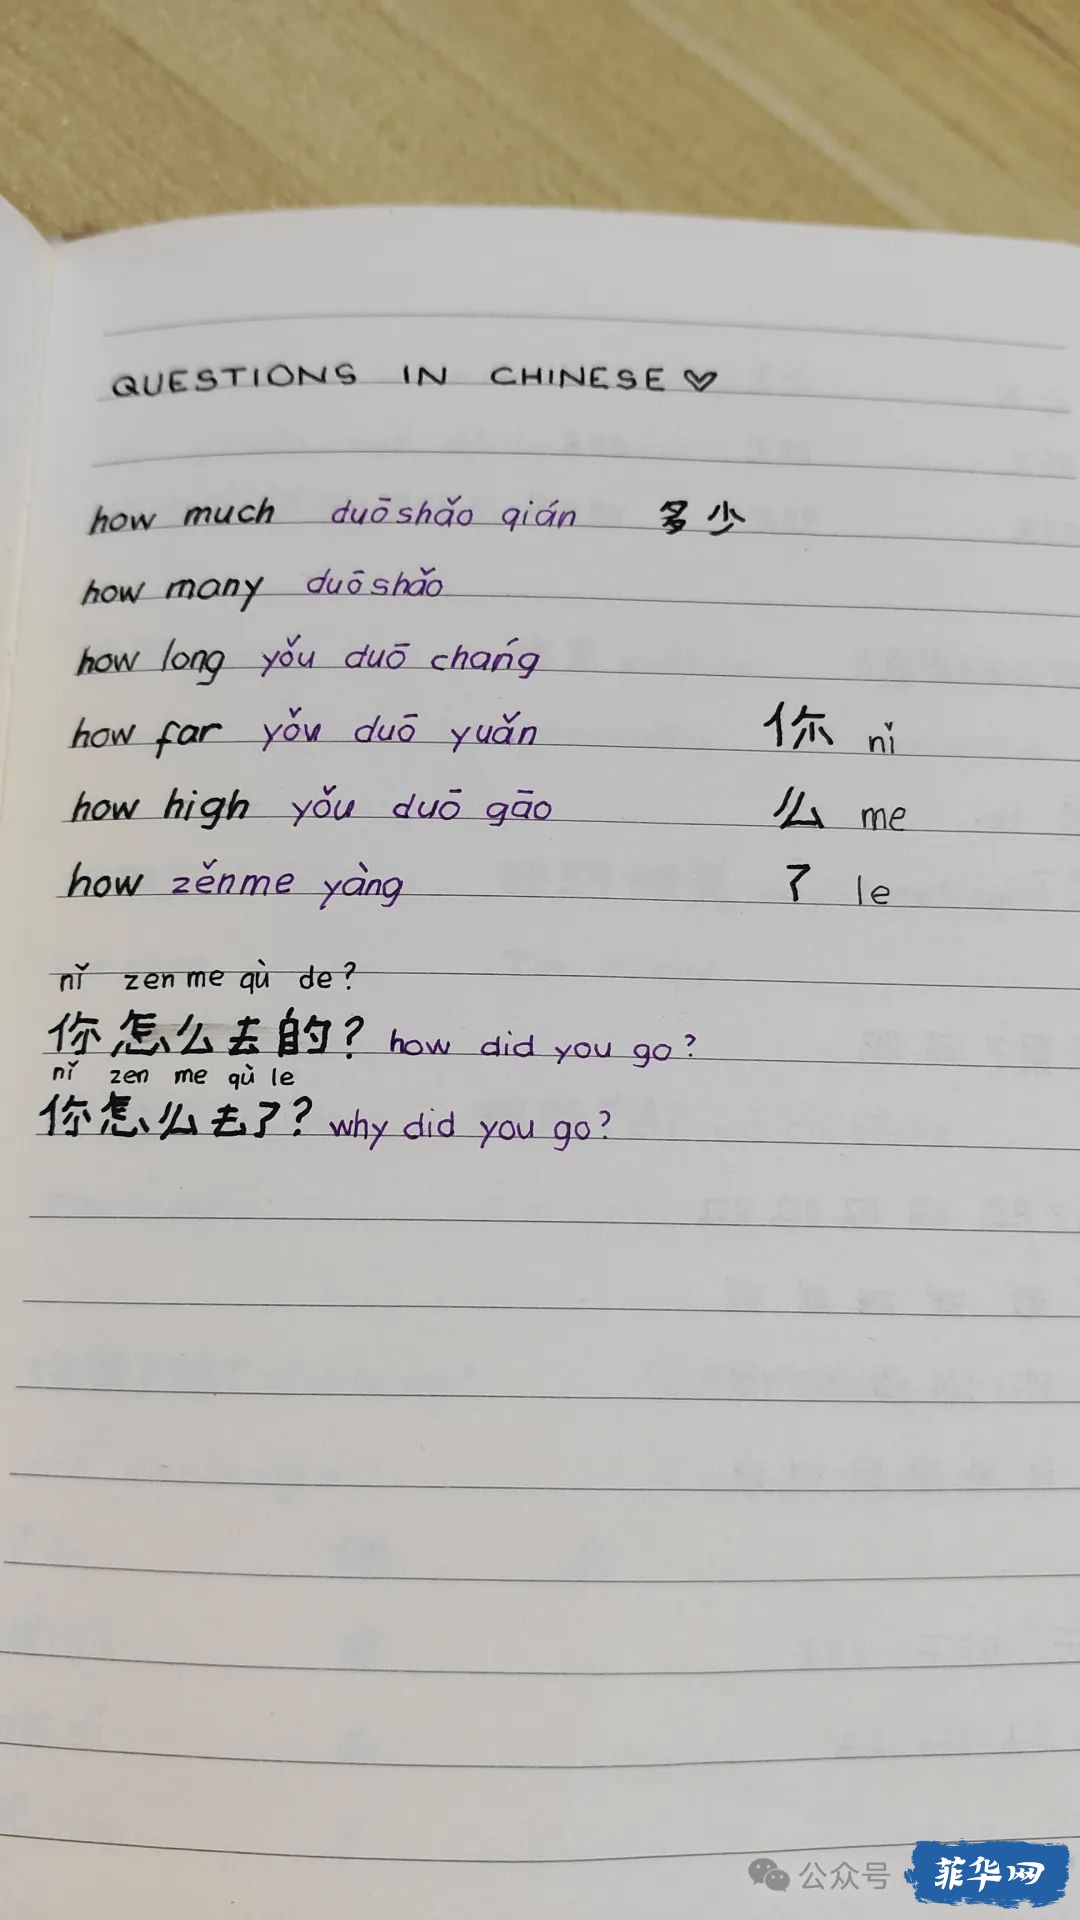 QUESTIONS IN CHINESE ♡
how much duōshǎo qián 多少
how many duōshǎo
how long yǒu duō cháng
how far yǒu duō yuǎn 你 nǐ
how high yǒu duō gāo 么 me
how zěnme yàng 了 le
nǐ zen me qù de?
你怎么去的? how did you go?
nǐ zen me qù le
你怎么去了? why did you go?
公众号 菲华网